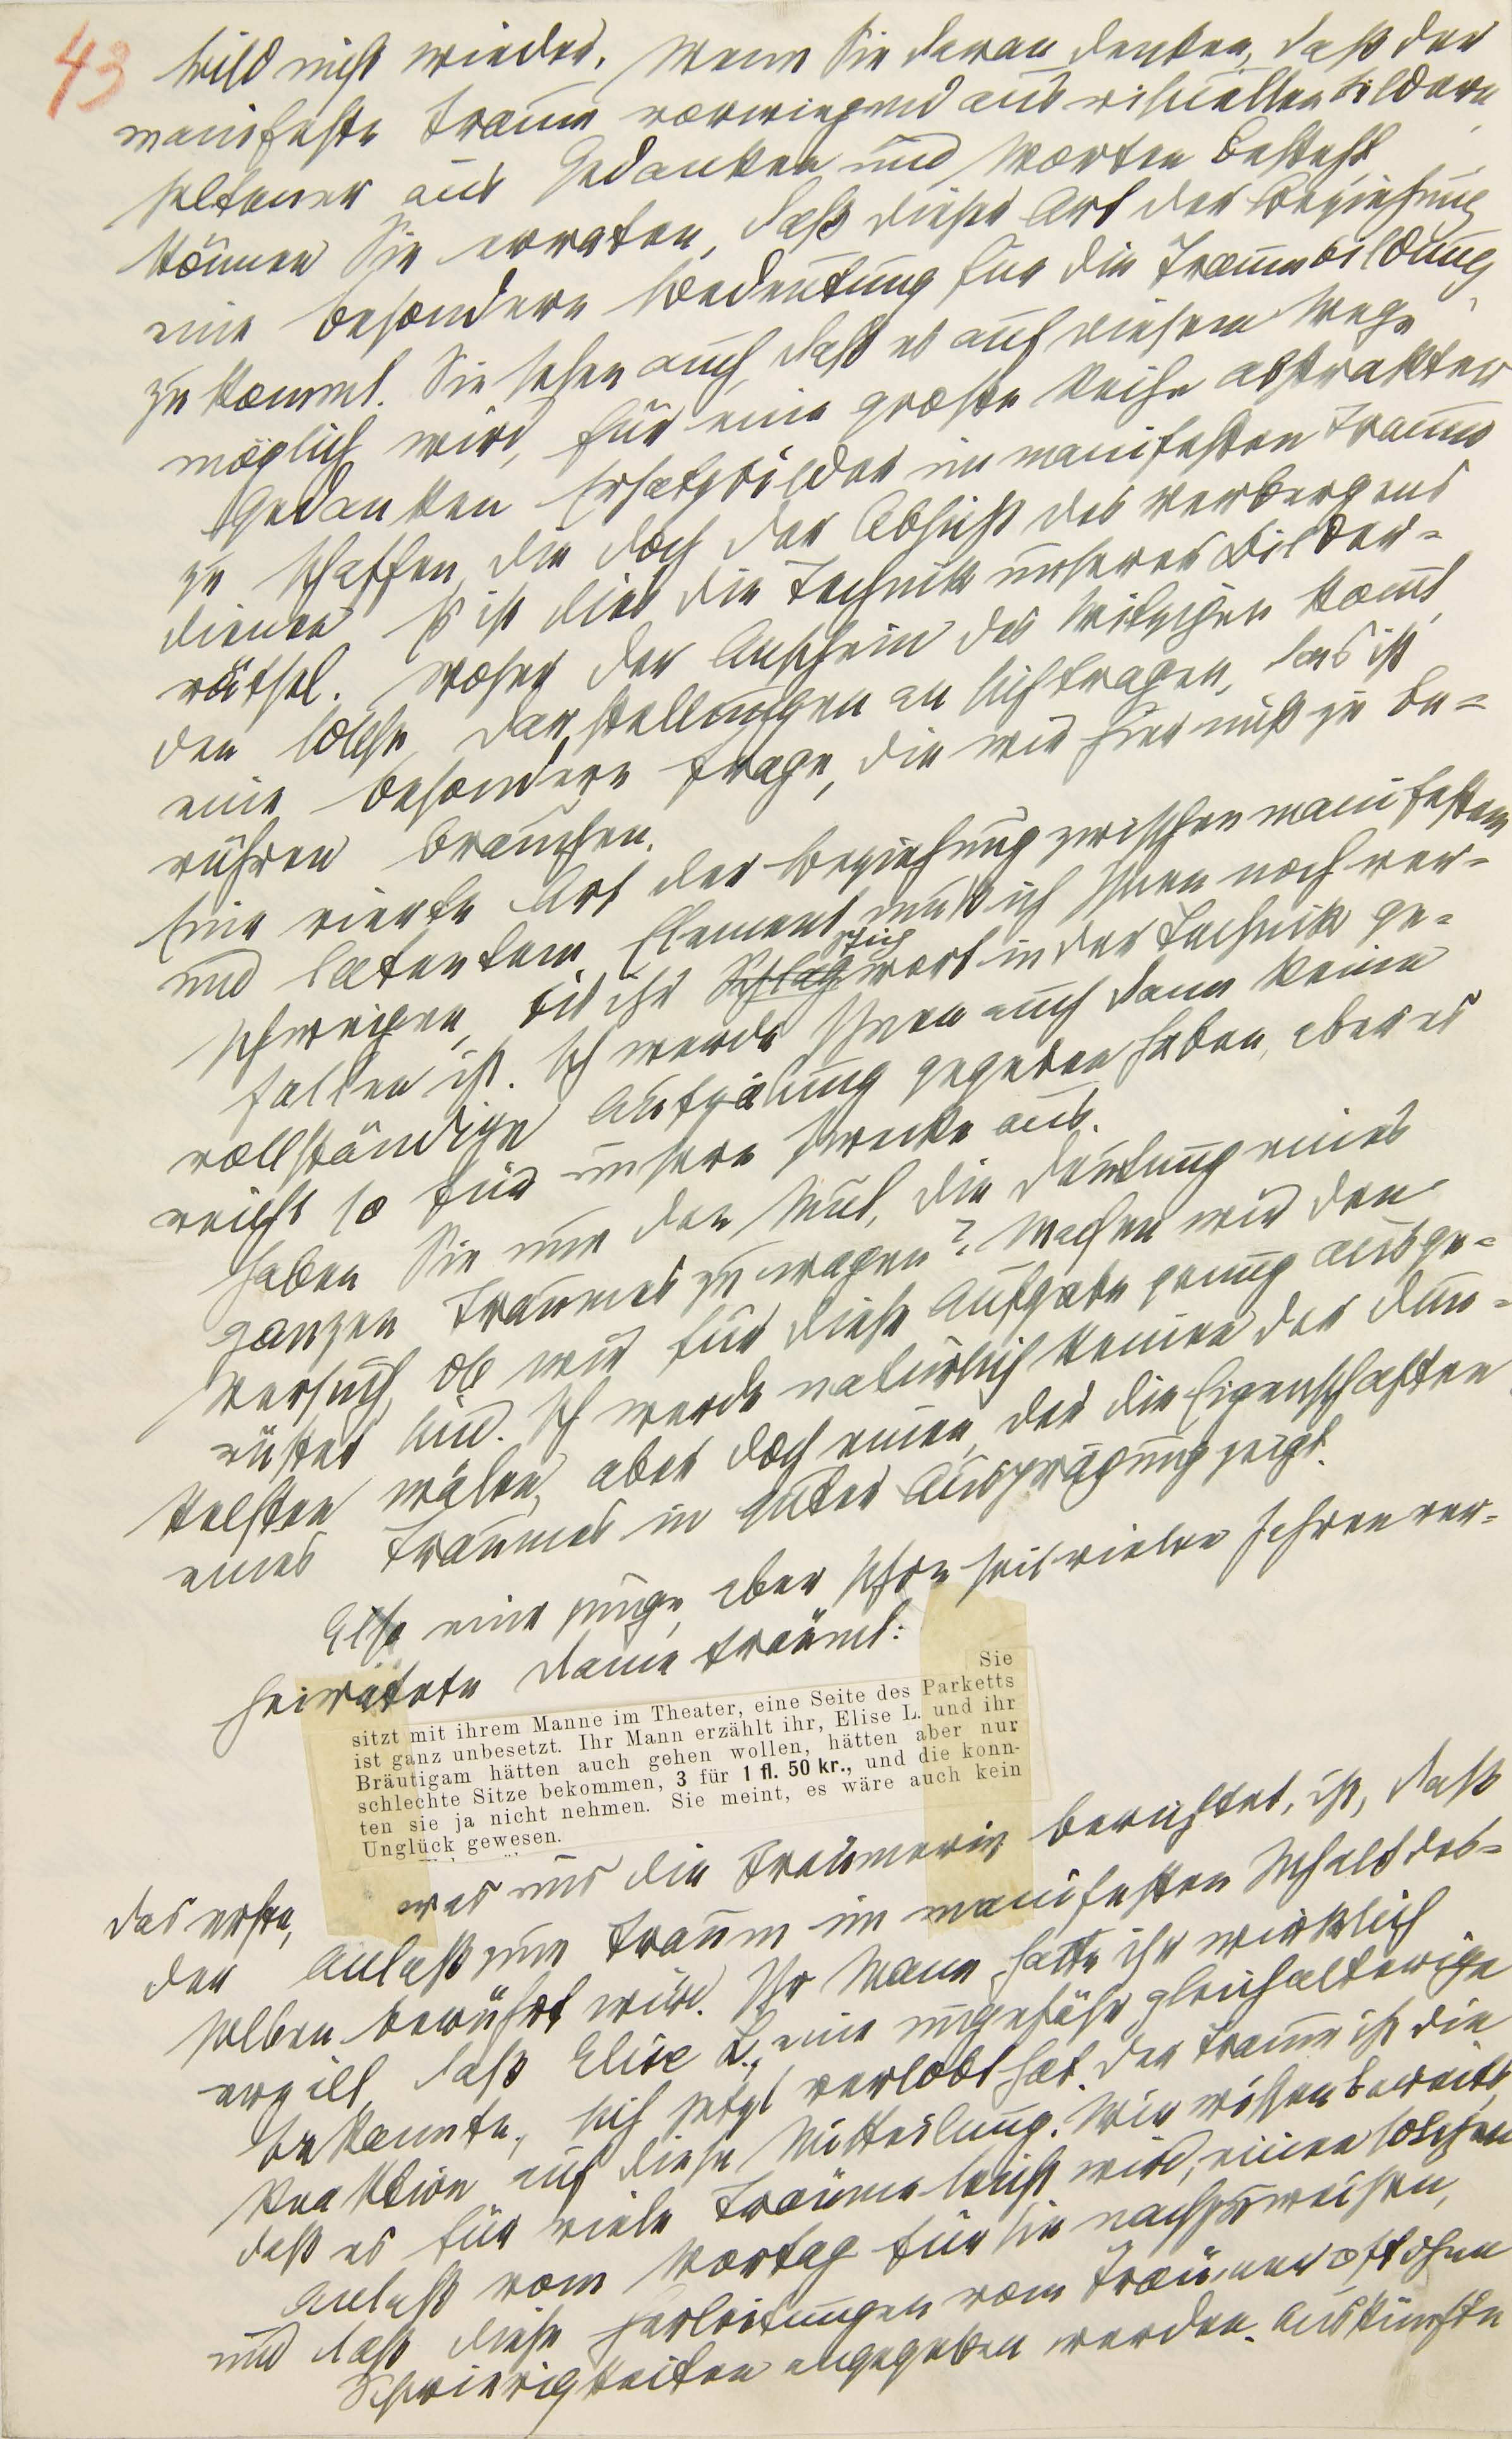 43
bild nicht wieder. Wenn Sie daran denken, daß der
manifeste Traum vorwiegend aus visuellen Bildern,
seltener aus Gedanken und Worten besteht,
können Sie erraten, daß dieser Art der Beziehung
eine besondere Bedeutung für die Traumbildung
zukommt. Sie sehen auch, daß es auf diesem Wege
möglich wird, für eine große Reihe abstrakter
Gedanken Ersatzbilder im manifesten Traum
zu schaffen, die doch der Absicht des Verbergens
dienen. Es ist dies die Technik unseres Bilder-
rätsel. Woher der Anschein des Witzigen kommt,
den solche Darstellungen an sich tragen, das ist
eine besondere Frage, die wir hier nicht zu be-
rühren brauchen.
Eine vierte Art der Beziehung zwischen manifestem
und latentem Element muß ich Ihnen noch ver-
schweigen, bis ihr Schlag Stichwort in der Technik ge-
fallen ist. Ich werde Ihnen auch dann keine
vollständige Aufzälung gegeben haben, aber es
reicht so für unsere Zwecke aus.
Haben Sie nun den Mut, die Deutung eines
ganzen Traumes zu wagen? Machen wir den
Versuch, ob wir für diese Aufgabe genug ausge-
rüstet sind. Ich werde natürlich keinen der dun-
kelsten wälen, aber doch einen, der die Eigenschaften
eines Traumes in guter Ausprägung zeigt.
Also eine junge, aber schon seit vielen Jahren ver-
heiratete Dame träumt:
Sie
sitzt mit ihrem Manne im Theater, eine Seite des Parketts
ist ganz unbesetzt. Ihr Mann erzählt ihr, Elise L. und ihr
Bräutigam hätten auch gehen wollen, hätten aber nur
schlechte Sitze bekommen, 3 für 1 fl. 50 kr., und die konn-
ten sie ja nicht nehmen. Sie meint, es wäre auch kein
Unglück gewesen.
Das erste, was uns die Träumerin berichtet, ist, daß
der Anlaß zum Traum im manifesten Inhalt des-
selben berührt wird. Ihr Mann hatte ihr wirklich
erzält, daß Elise L., eine ungefähr gleichalterige
Bekannte, sich jetzt verlobt hat. Der Traum ist die
Reaktion auf diese Mitteilung. Wir wissen bereits,
daß es für viele Träume leicht wird, einen solchen
Anlaß vom Vortag für sie nachzuweisen,
und daß diese Herleitungen vom Träumer oft ohne
Schwierigkeiten angegeben werden. Auskünfte